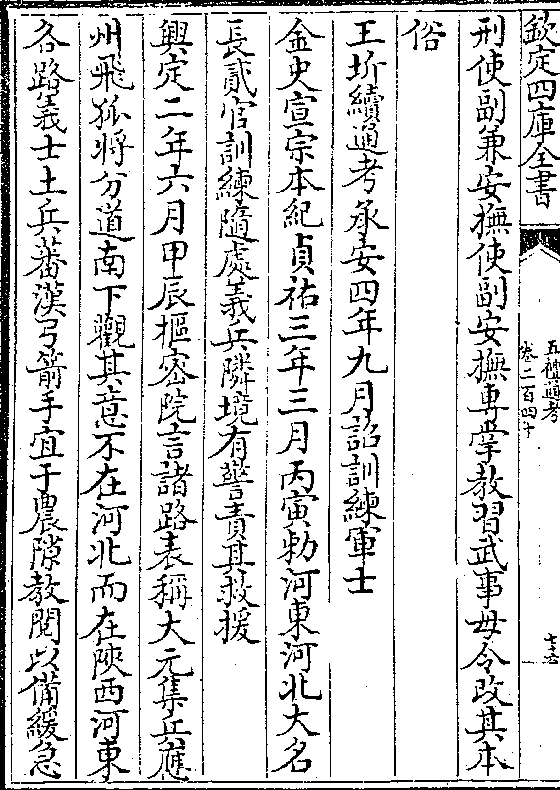 欽定四庫全書
五禮通考
卷二百四十
刑使副兼安撫使副安撫專掌教習武事毋令改其本
俗
王圻續通考承安四年九月詔訓練軍士
金史宣宗本紀貞祐三年三月丙寅勅河東河北大名
長貳官訓練隨處義兵隣境有警責其救援
興定二年六月甲辰樞密院言諸路表稱大元集兵應
州飛狐將分道南下觀其意不在河北而在陝西河東
各路義士土兵蕃漢弓箭手宜于農隙教閱以備緩急